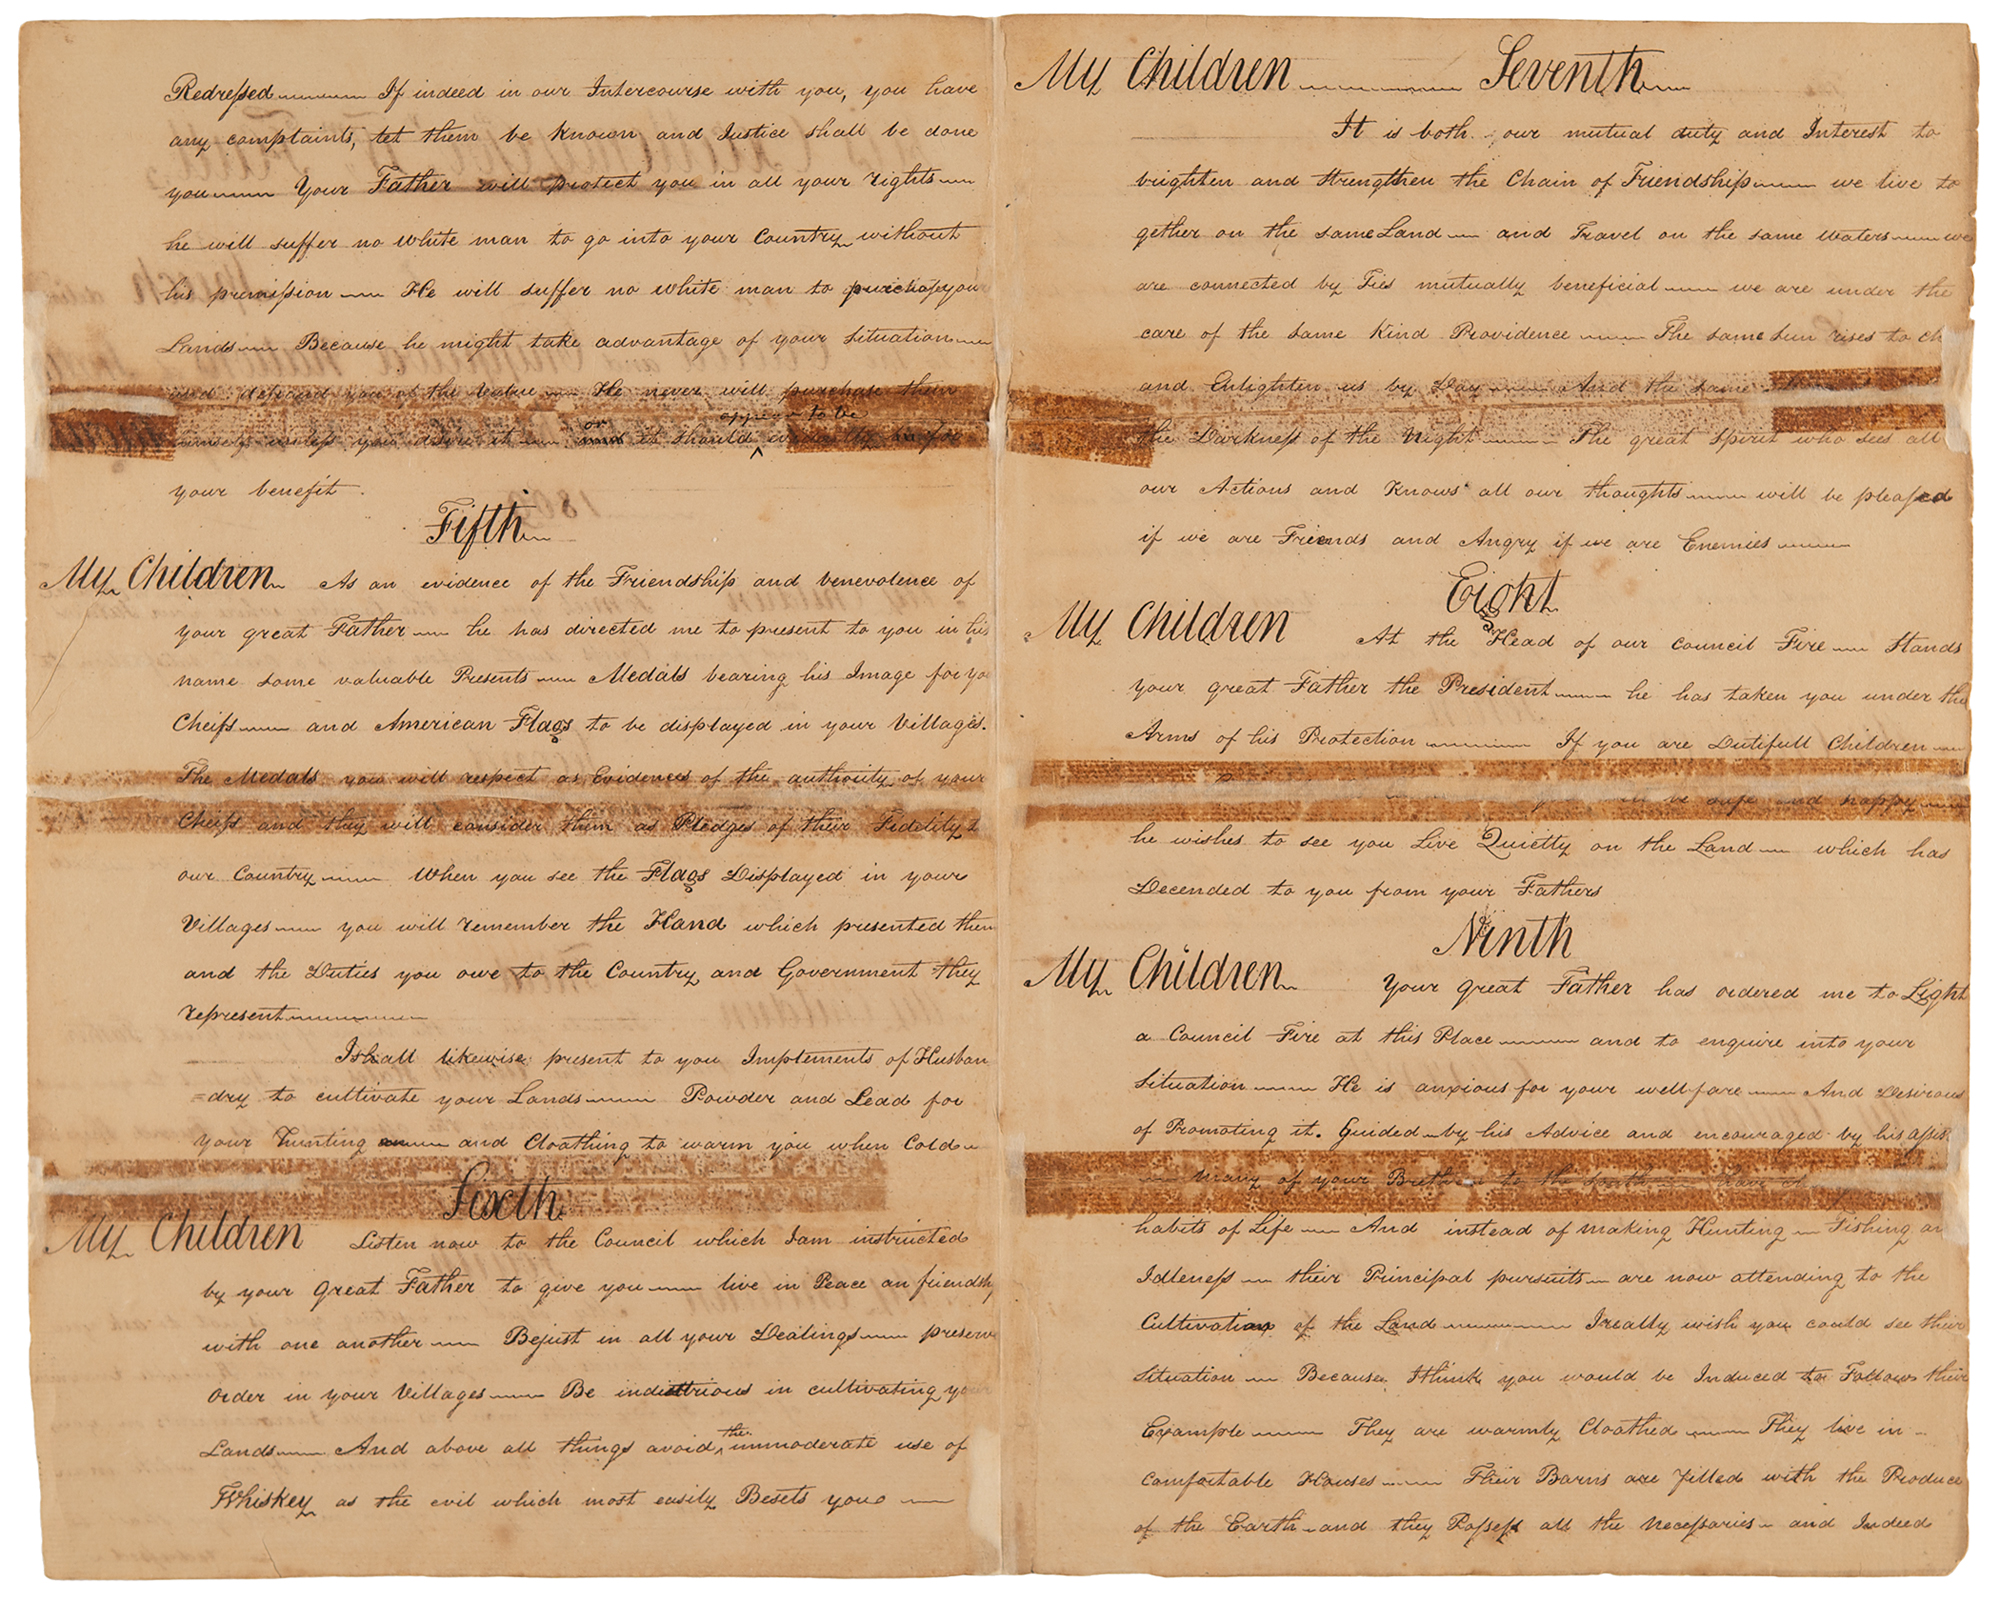 Redreſsed If indeed in our Intercourse with you, you have
any complaints, let them be known and Justice shall be done
you Your Father will protect you in all your rights
he will suffer no white man to go into your Country without
his premiſsion He will suffer no white man to purchase your
Lands Because he might take advantage of your Situation
and defraud you of the Value He never will purchase them
unleſs you desire it or it should evidently
appear to be
for
your benefit.
Fifth
My Children As an evidence of the Friendship and benevolence of
your great Father he has directed me to present to you in his
name some valuable Presents Medals bearing his Image for
Cheifs and American Flags to be displayed in your Villages.
The Medals you will respect as Evidences of the authority of your
Cheifs and they will consider them as Pledges of their Fidelity
our Country When you see the Flags Displayed in your
Villages you will remember the Hand which presented them
and the Duties you owe to the Country and Government they
represent
I shall likewise present to you Implements of Husban
=dry to cultivate your Lands Powder and Lead for
your hunting and Cloathing to warm you when Cold
Sixth
My Children Listen now to the Council which I am instructed
by your great Father to give you live in Peace an friendsh
with one another Be just in all your Dealings preserve
order in your Villages Be industrious in cultivating
Lands And above all things avoid the immoderate use of
Whiskey as the evil which most easily Besets you
My Children Seventh
It is both our mutual duty and Interest to
brighten and strengthen the Chain of Friendship we live to
gether on the same Land and Travel on the same waters we
are connected by Ties mutually beneficial we are under the
care of the same Kind Providence The same Sun rises to ch
and Enlighten us by Day And the same
the Darkneſs of the Night The great Spirit who sees all
our Actions and Knows all our thoughts will be pleaſed
if we are Friends and Angry if we are Enemies
Eight
My Children At the Head of our council Fire Stands
your great Father the President he has taken you under the
Arms of his Protection If you are Dutifull Children
be safe and happy
he wishes to see you Live Quietly on the Land which has
Decended to you from your Fathers
Ninth
My Children Your great Father has ordered me to Light
a Council Fire at this Place and to enquire into your
Situation He is anxious for your wellfare And Desirous
of Promoting it. Guided by his Advice and encouraged by his aſsis
many of your to the South have
habits of Life And instead of making Hunting Fishing an
Idleneſs their Principal pursuits are now attending to the
Cultivation of the Land I really wish you could see their
Situation Because I think you would be Induced to Follow their
Example They are warmly Cloathed They live in
comfortable Houses Their Barns are filled with the Produce
of the Earth and they Poſseſs all the Neceſsaries and Indeed